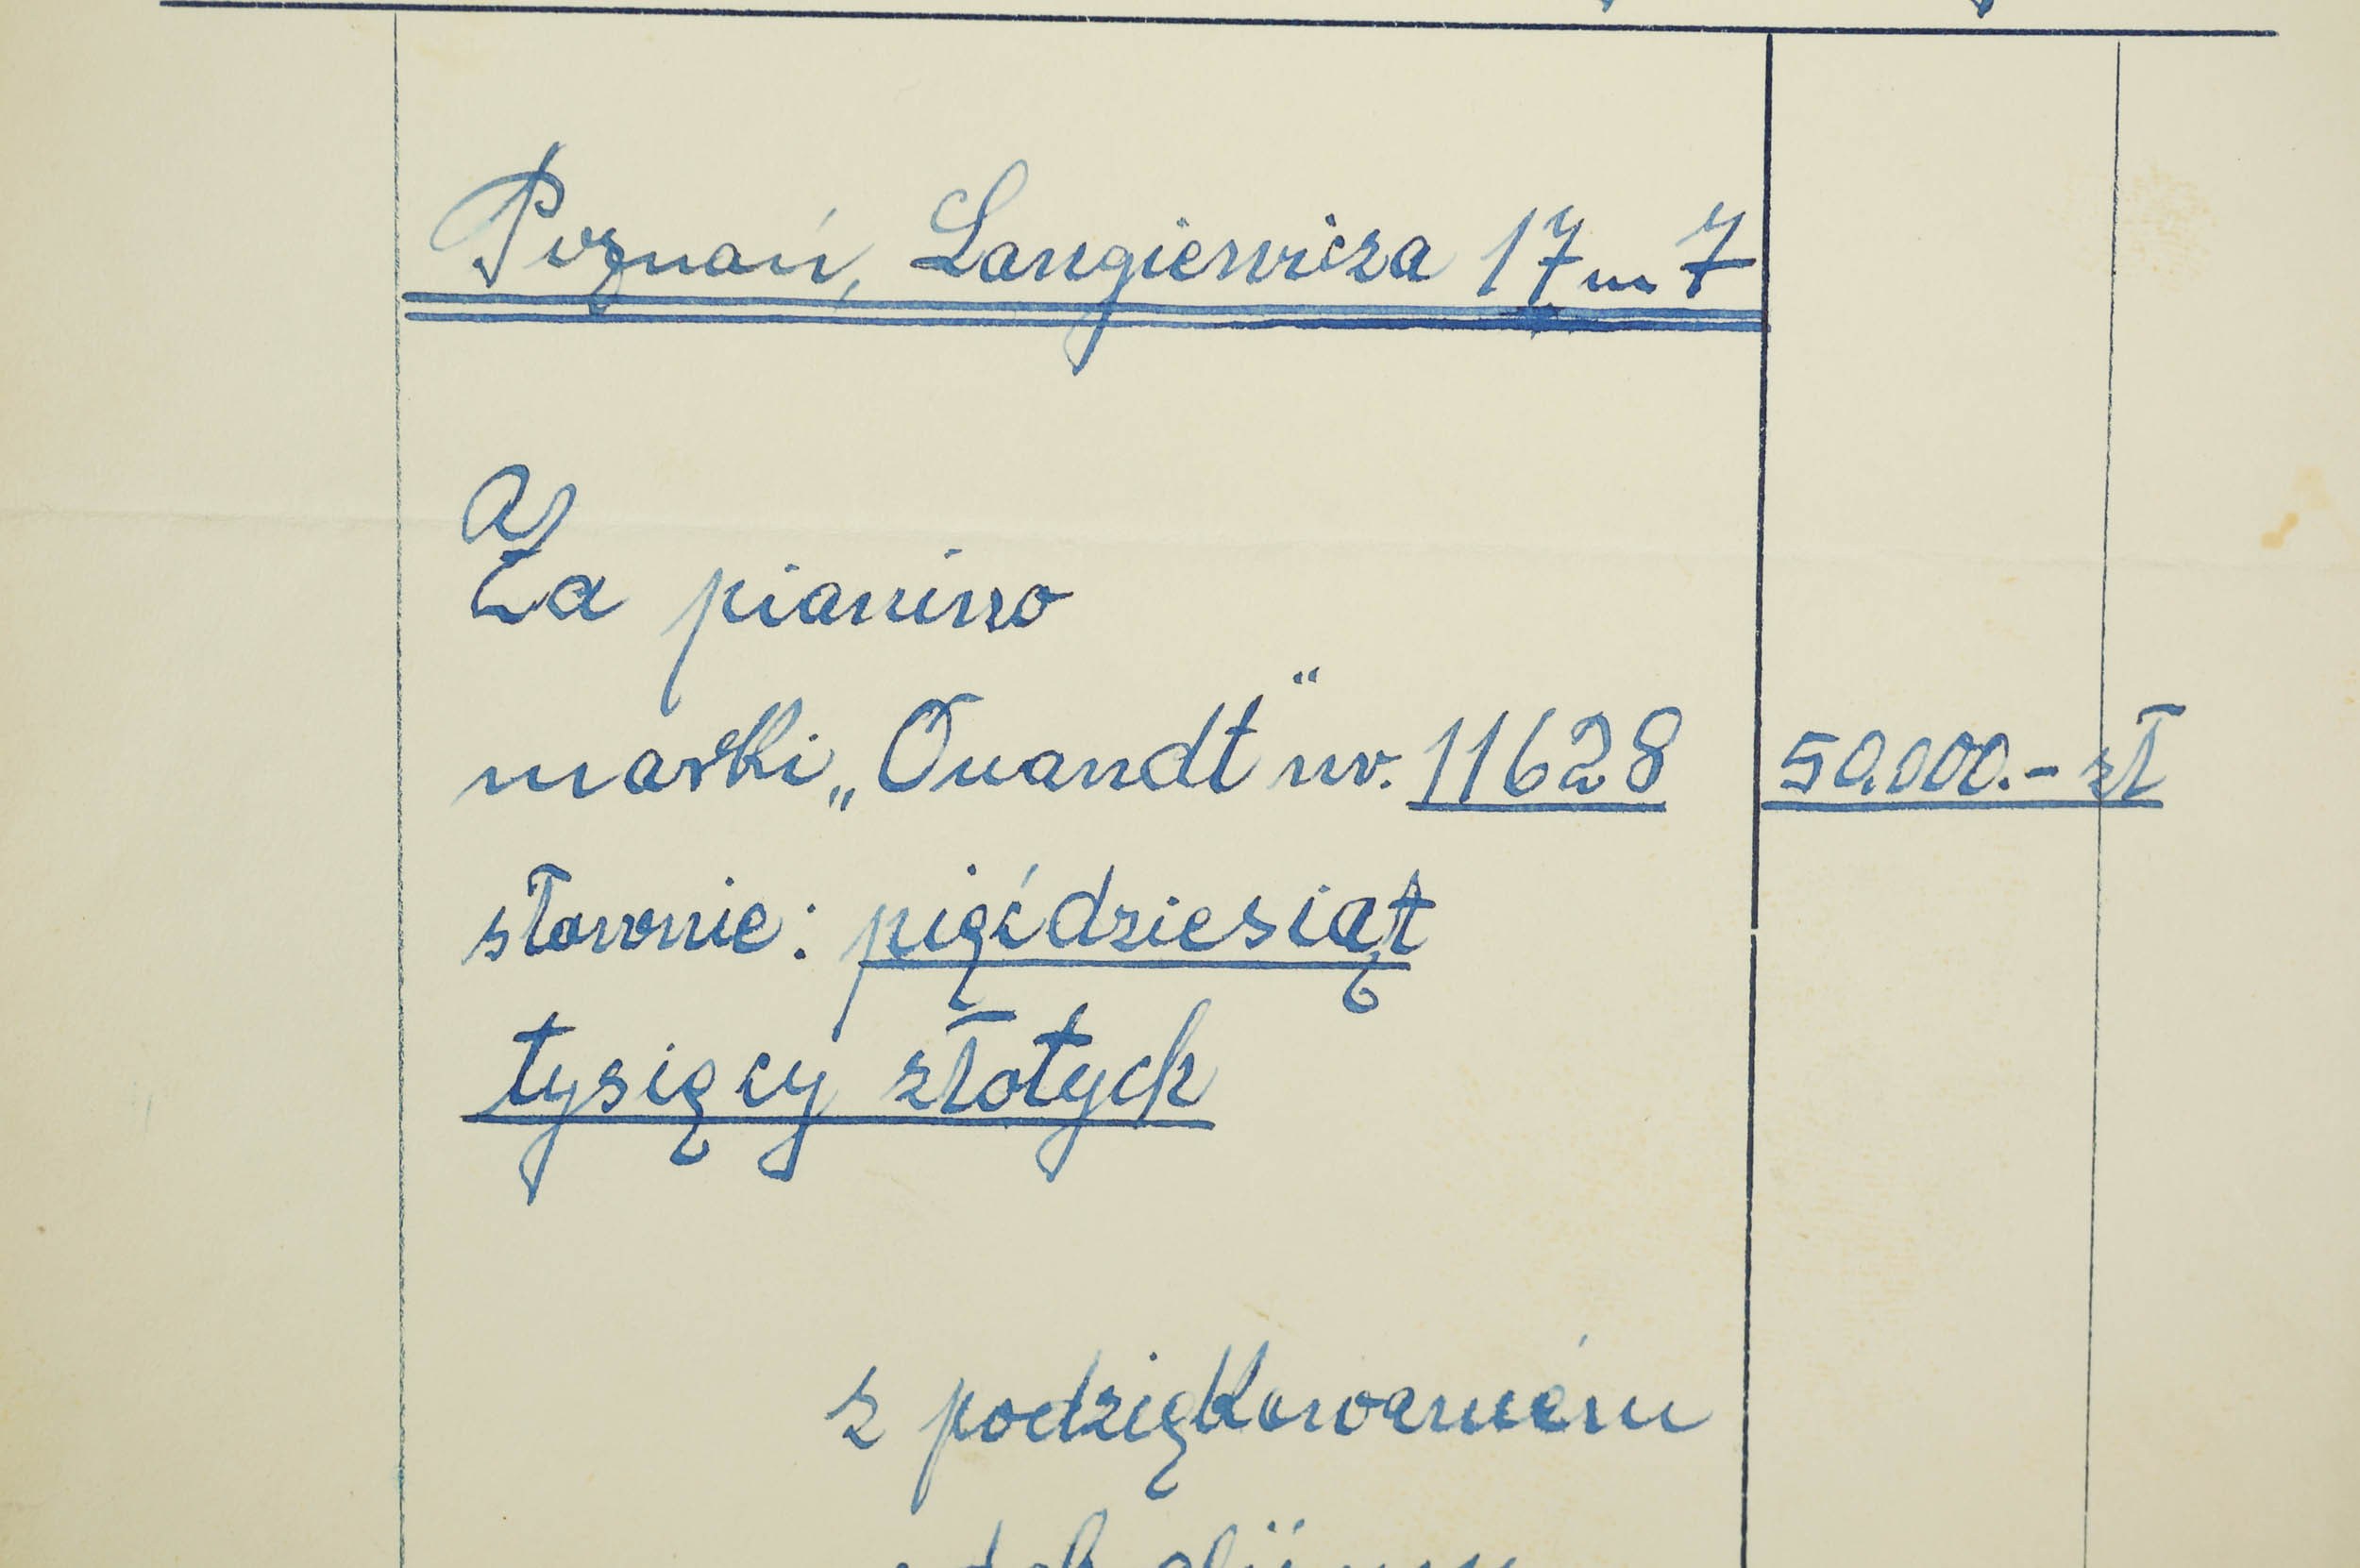 Poznań, Langiewicza 17 m 7
a)
Za pianino
marki „Quandt“ nr. 11628 50.000.- zł
słownie: pięćdziesiąt
tysięcy złotych
z podziękowaniem